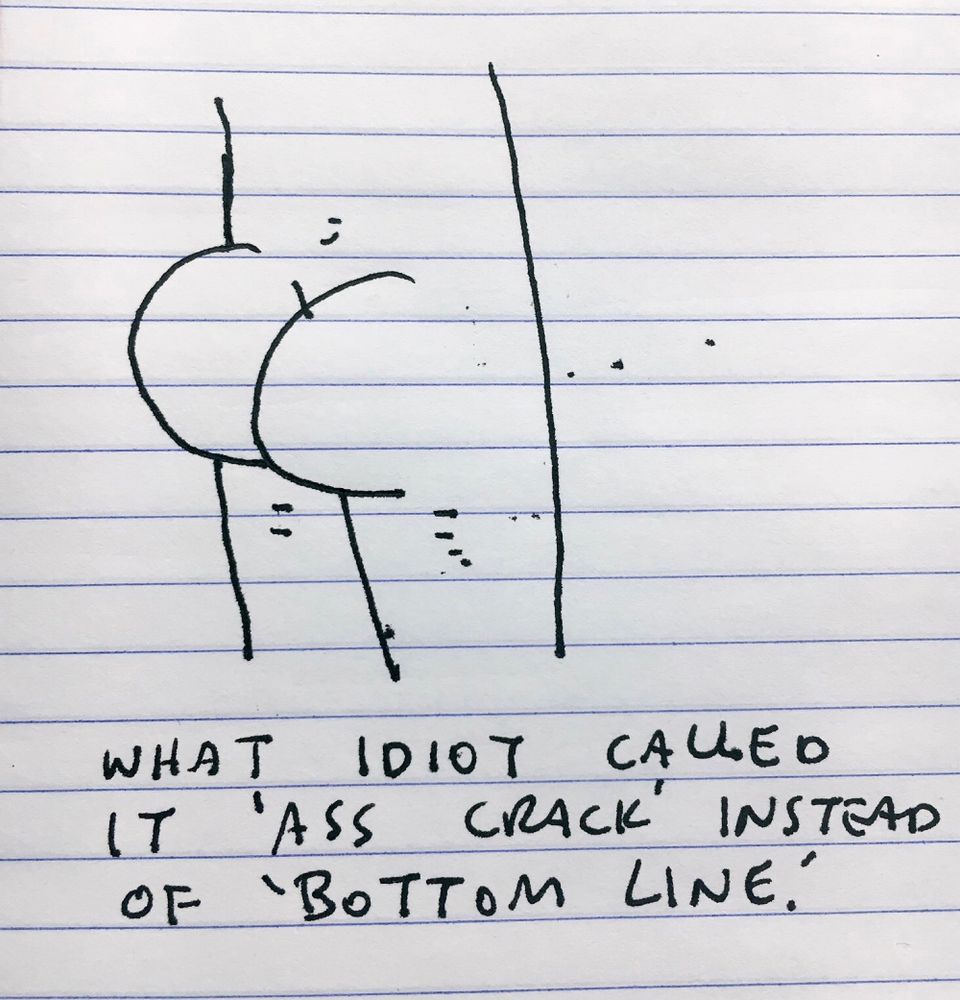 WHAT IDIOT CALLED
IT 'ASS CRACK' INSTEAD
OF 'BOTTOM LINE.'